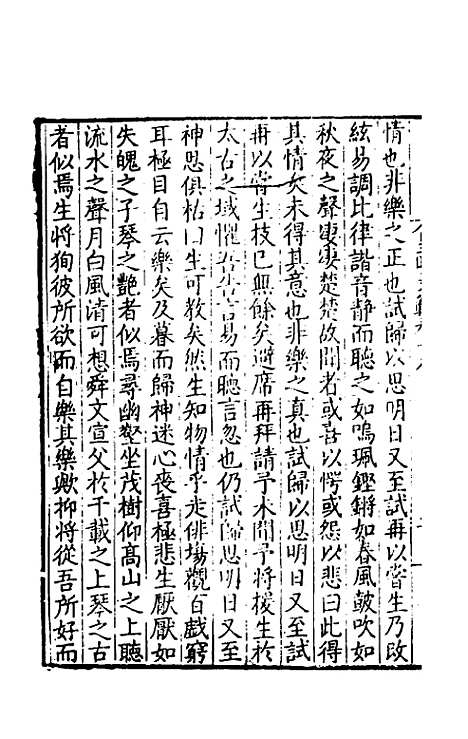 情也非樂之正也試歸以思明日又至試再以嘗生乃改
絃易調比律諧音靜而聽之如嗚珮鏗鏘如春風鼓吹如
秋夜之聲悽悽楚楚故聞者或喜以愕或怨以悲曰此得
其情矣未得其意也非樂之真也試歸以思明日又至試
再以嘗生技已興餘矣避席再拜請予未聞予將援生於
太古之域懼吾生古易而聽言忽也仍試歸思明日又至
神思俱枯曰生可教矣然生知物情乎走俳場觀百戲窮
耳極目自云樂矣及暮而歸神迷心喪喜極悲生厭厭如
失魄之子琴之艷者似焉尋幽壑坐茂樹仰高山之上聽
流水之聲月白風清可想舜文宣父於千載之上琴之古
者似焉生將狥彼所欲而自樂其樂歟抑將從吾所好而